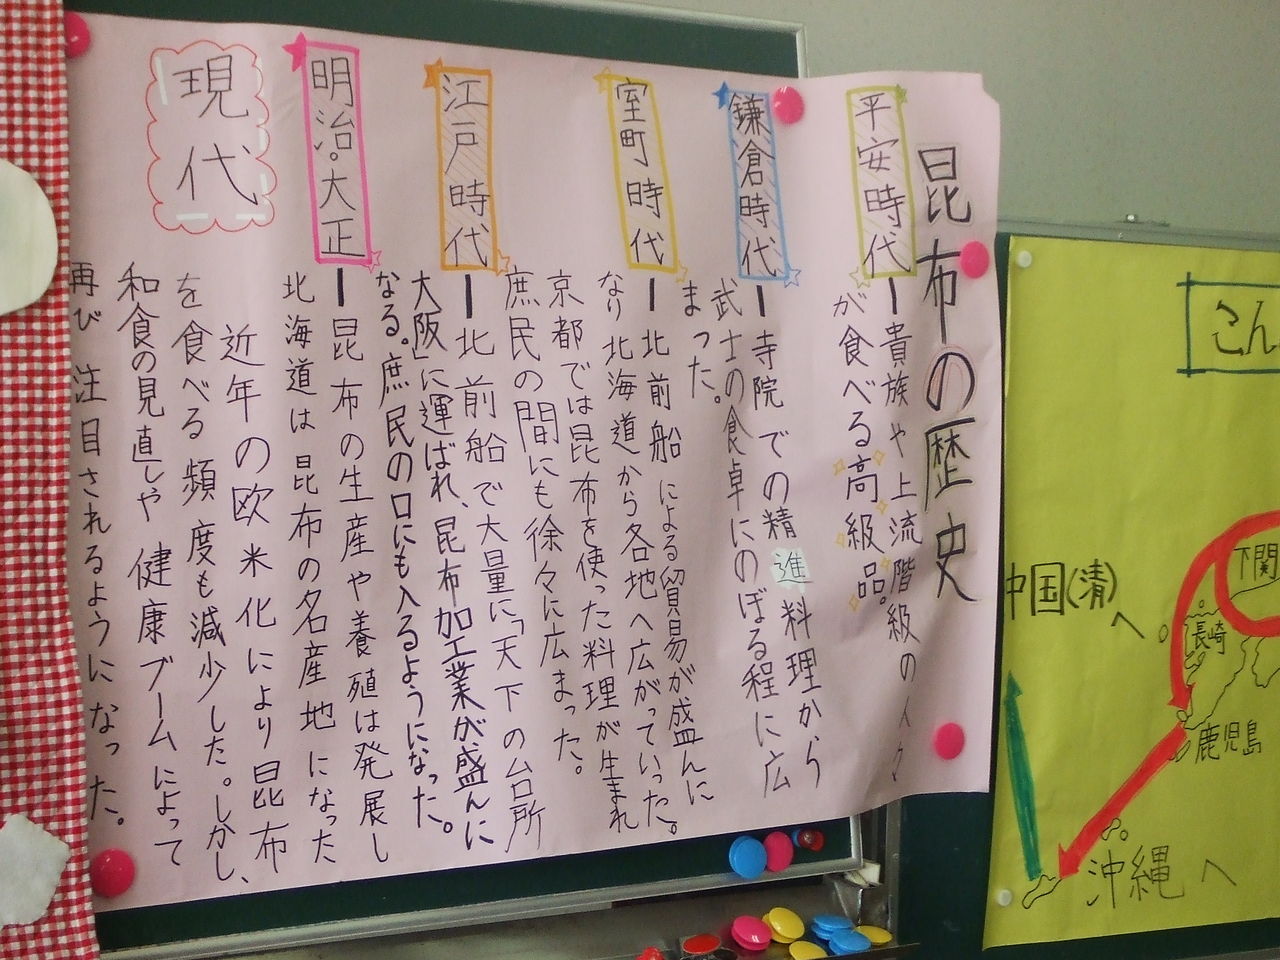 昆布の歴史
平安時代
ー貴族や上流階級の人々
が食べる高級品。
鎌倉時代
ー寺院での精進料理から
武士の食卓にのぼる程に広
まった。
室町時代
ー北前船による貿易が盛んに
なり北海道から各地へ広がっていった。
京都では昆布を使った料理が生まれ
庶民の間にも徐々に広まった。
江戸時代
ー北前船で大量に「天下の台所
大阪」に運ばれ、昆布加工業が盛んに
なる。庶民の口にも入るようになった。
明治・大正
ー昆布の生産や養殖は発展し
北海道は昆布の名産地になった
現代
近年の欧米化により昆布
を食べる頻度も減少した。しかし、
和食の見直しや健康ブームによって
再び注目されるようになった。
こん
下関
中国(清)
へ
長崎
鹿児島
沖縄へ